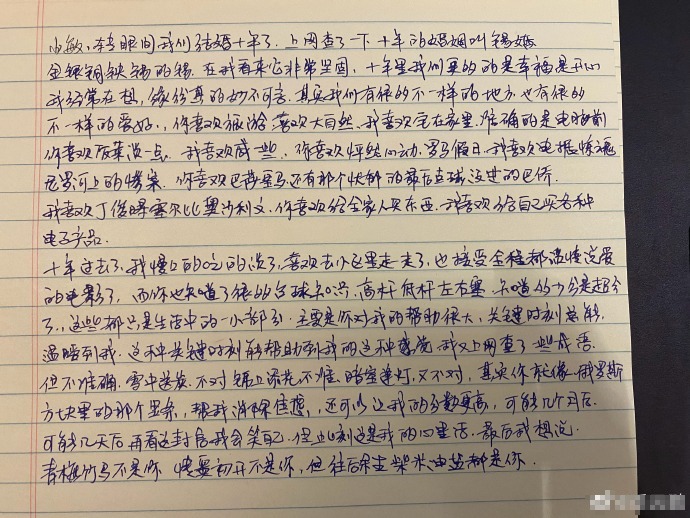 小敏,转眼间我们结婚十年了.上网查了一下十年的婚姻叫锡婚
金银铜铁锡的锡.在我看来它非常坚固,十年里我们更多的是幸福是开心
我经常在想,缘份真的妙不可言.其实我们有很多不一样的地方,也有很多
不一样的爱好.,你喜欢旅游喜欢大自然.我喜欢宅在家里.准确的是电脑前
你喜欢饭菜淡一点.我喜欢咸一些,你喜欢怦然心动.罗马假日.我喜欢电锯惊魂
尼罗河上的惨案.你喜欢巴蒂斯都还有那个快船的最后点球没进的巴乔
我喜欢丁俊晖塞尔比奥沙利文.你喜欢给全家人买东西.我喜欢给自己买各种
电子产品.
十年过去了,我慢慢的吃的淡了,喜欢去小区里走一走了,也接受全程都谈情说爱
的电影了,而你也知道了很多台球知识,高杆低杆左右塞.知道的147分是超分
了,这些都只是生活中的一小部分.主要是你对我的帮助很大,关键时刻总能
温暖到我.这种关键时刻能帮助到我的这种感觉我又上网查了一些成语.
但不准确.雪中送炭.不对锦上添花不准.暗室逢灯,又不对,其实你就像俄罗斯
方块里的那个竖条,帮我消除住想,还可以让我的分数更高,可能几个月后.
可能几天后再看这封信我会笑自己.但此刻这是我的心里话.最后我想说.
青梅竹马不是你 情窦初开不是你,但往后余生柴米油盐都是你.